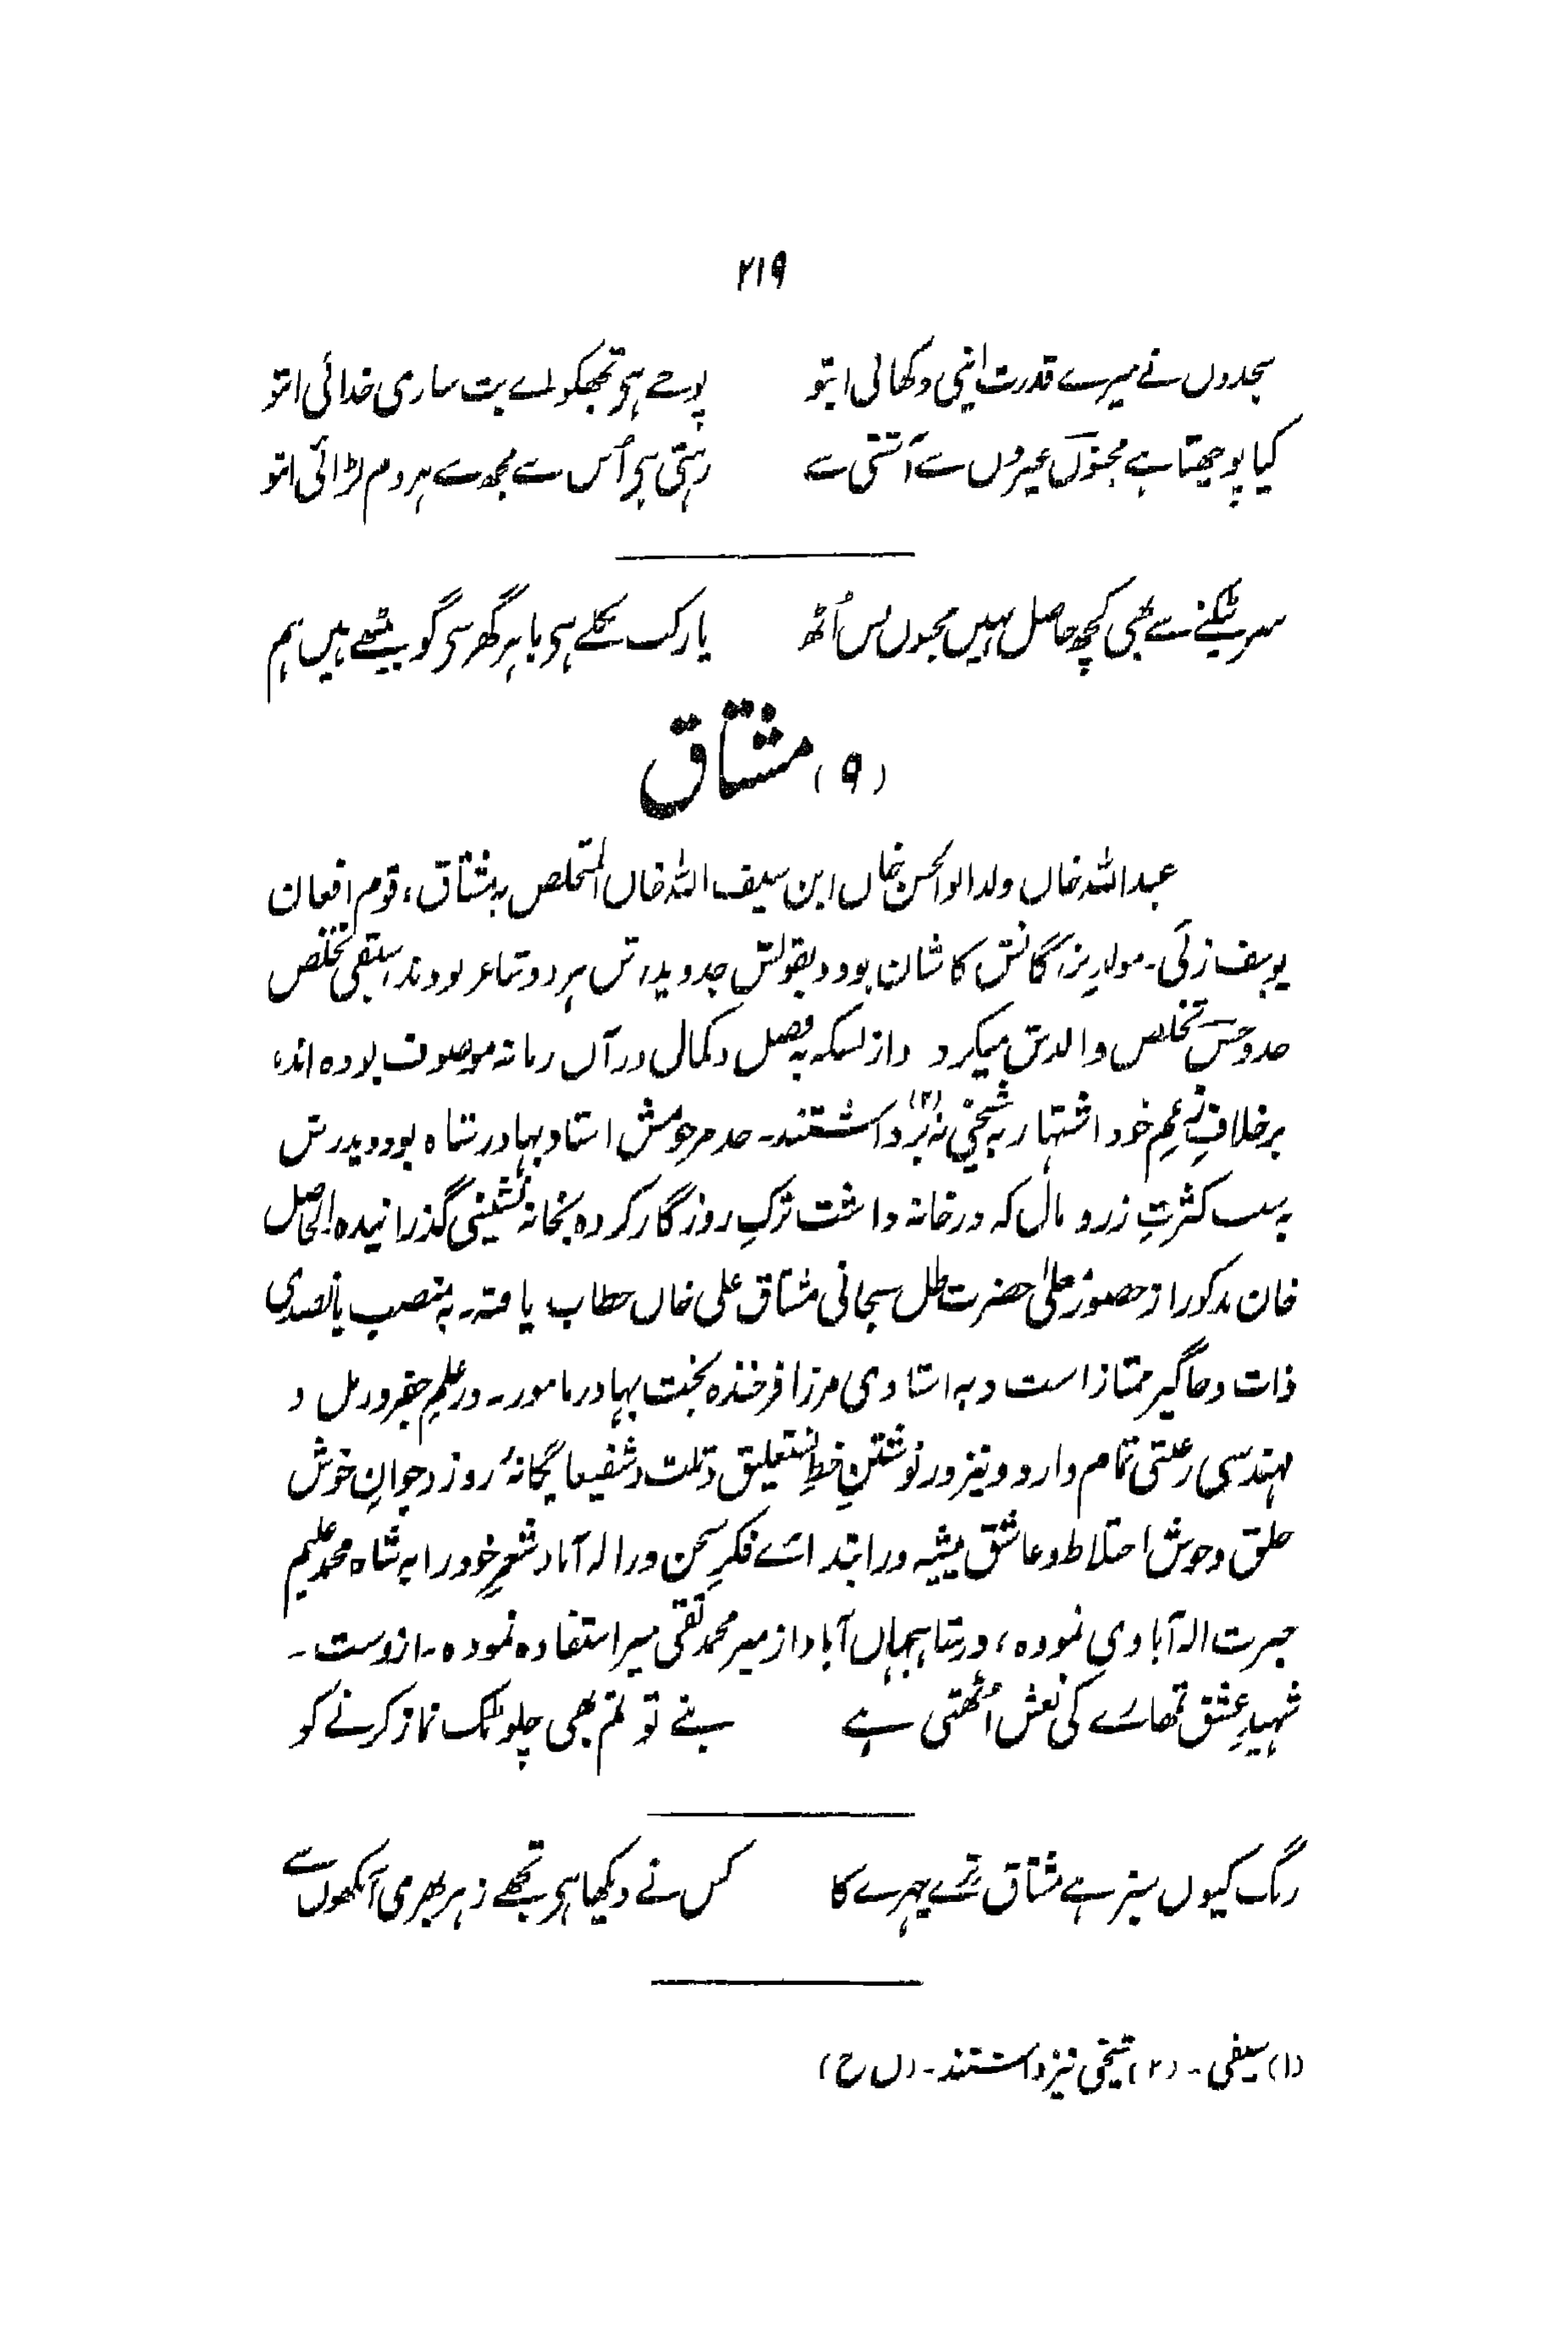 ۲۱۹
سجدوں نے میرے قدرت اپنی دکھائی ابتو پوجے ہی تجھکو اے بت ساری خدائی ابتو
کیا پوچھتا ہے مجنوںؔ غیروں سے آشتی ہے رہتی ہی اُس سے مجھ سے ہر دم لڑائی ابتو
سر پٹکنے سے بھی کچھ حاصل نہیں مجنوں بس اُٹھ یار کب نکلے ہی باہر گھر سی گو بیٹھے ہیں ہم
(۹) مشتاق
عبداللہ خاں ولد ابوالحسن خاں ابن سیف اللہ خاں المتخلص بہ مشتاق، قوم افغان
یوسف زئی۔ مولدِ بزرگانش کاشان بود و بقولش جد و پدرش ہر دو شاعر بودند، سیقی تخلص
جد و حسنؔ تخلص والدش میکرد و از بسکہ بہ فضل و کمال در آں زمانہ موصوف بودہ اند،
برخلافِ زعمِ خود اشتہار بہ شیخی نہ (۲) برداشتند۔ جد مرحومش استاد بہادر شاہ بود و پدرش
بہ سبب کثرتِ زر و مال کہ در خانہ داشت ترکِ روزگار کردہ بخانہ نشینی گذرانیدہ۔ الحاصل
خان مذکور از حضورِ معلیٰ حضرت ظل سبحانی مشتاق علی خاں خطاب یافتہ۔ بہ منصب پانصدی
ذات و جاگیر ممتاز است و بہ استادی مرزا فرخندہ بخت بہادر مامور۔ در علمِ جفر و رمل و
ہندسی رغبتی تمام دارد و نیز در نوشتنِ خطِ نستعلیق و ثلث و شفیعا یگانۂ روز و جوانِ خوش
خلق و خوش اختلاط و عاشق پیشہ در ابتدائے فکرِ سخن در الہ آباد شعرِ خود را بہ شاہ محمد علیم
حیرت الہ آبادی نمودہ، در شاہجہاں آباد از میر محمد تقی میر استفادہ نمودہ۔ ازوست۔
شہیدِ عشق تمھارے کی نعش اُٹھتی ہے بنے تو تم بھی چلو ٹک نماز کرنے کو
رنگ کیوں سبز ہے مشتاق ترے چہرے کا کس نے دیکھا ہی تجھے زہر بھری آنکھوں سے
(۱) سیفی۔ (۲) شیخی نیز داشتند۔ (ں ح)